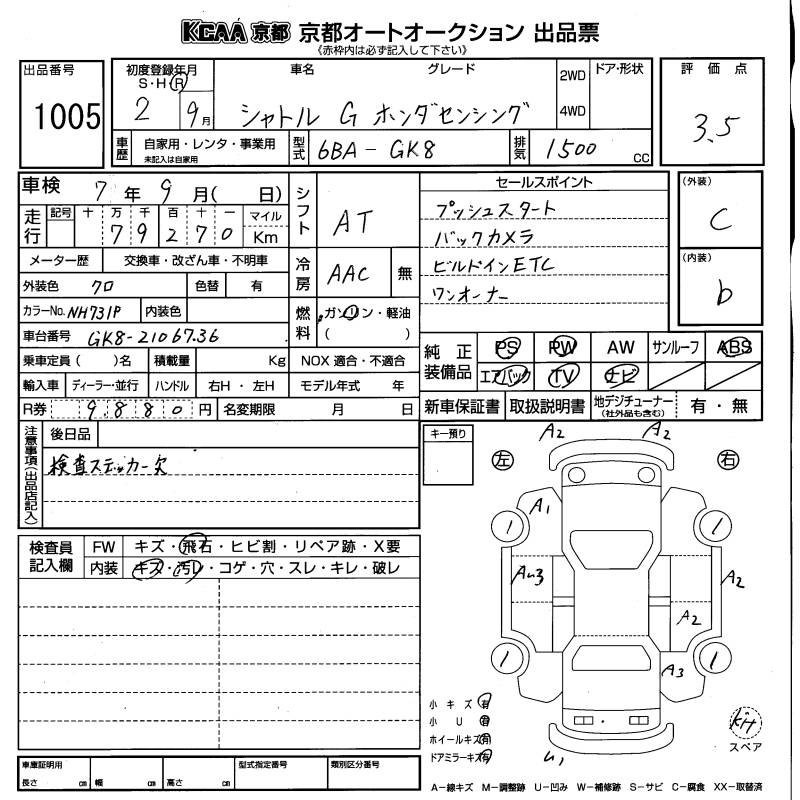 KCAA 京都 京都オートオークション 出品票
《赤枠内は必ず記入して下さい》
出品番号
1005
初度登録年月
S・H・R
2 9月
車名 グレード
シャトル G ホンダセンシング
2WD
4WD
ドア・形状
評価点
3.5
車歴
自家用・レンタ・事業用
未記入は自家用
型式
6BA-GK8
排気
1500 CC
車検 7年 9月( 日)
走行
記号 十 万 千 百 十 一
79270
マイル
Km
シフト
AT
セールスポイント
プッシュスタート
バックカメラ
ビルドインETC
ワンオーナー
(外装)
C
(内装)
b
メーター歴 交換車・改ざん車・不明車
外装色 クロ 色替 有
冷房 AAC 無
カラーNo. NH731P 内装色
燃料 ガソリン・軽油
( )
車台番号 GK8-2106736
乗車定員( )名 積載量 Kg NOX 適合・不適合
輸入車 ディーラー・並行 ハンドル 右H・左H モデル年式 年
R券 9880円 名変期限 月 日
純正装備品
PS PW AW サンルーフ ABS
エアバック TV ナビ
新車保証書 取扱説明書 地デジチューナー
(社外品も含む)
有・無
注意事項(出品店記入)
後日品
検査ステッカー欠
キー預り
左 右
A2 A2
A1
1 1
Au3 A2
A2
1 1
A3
U1
検査員記入欄
FW キズ・飛石・ヒビ割・リペア跡・X要
内装 キズ・汚レ・コゲ・穴・スレ・キレ・破レ
小キズ 有
小U 有
ホイールキズ 有
ドアミラーキズ 有
スペア
車庫証明用
長さ cm 幅 cm 高さ cm
型式指定番号 類別区分番号
A-線キズ M-調整跡 U-凹み W-補修跡 S-サビ C-腐食 XX-取替済